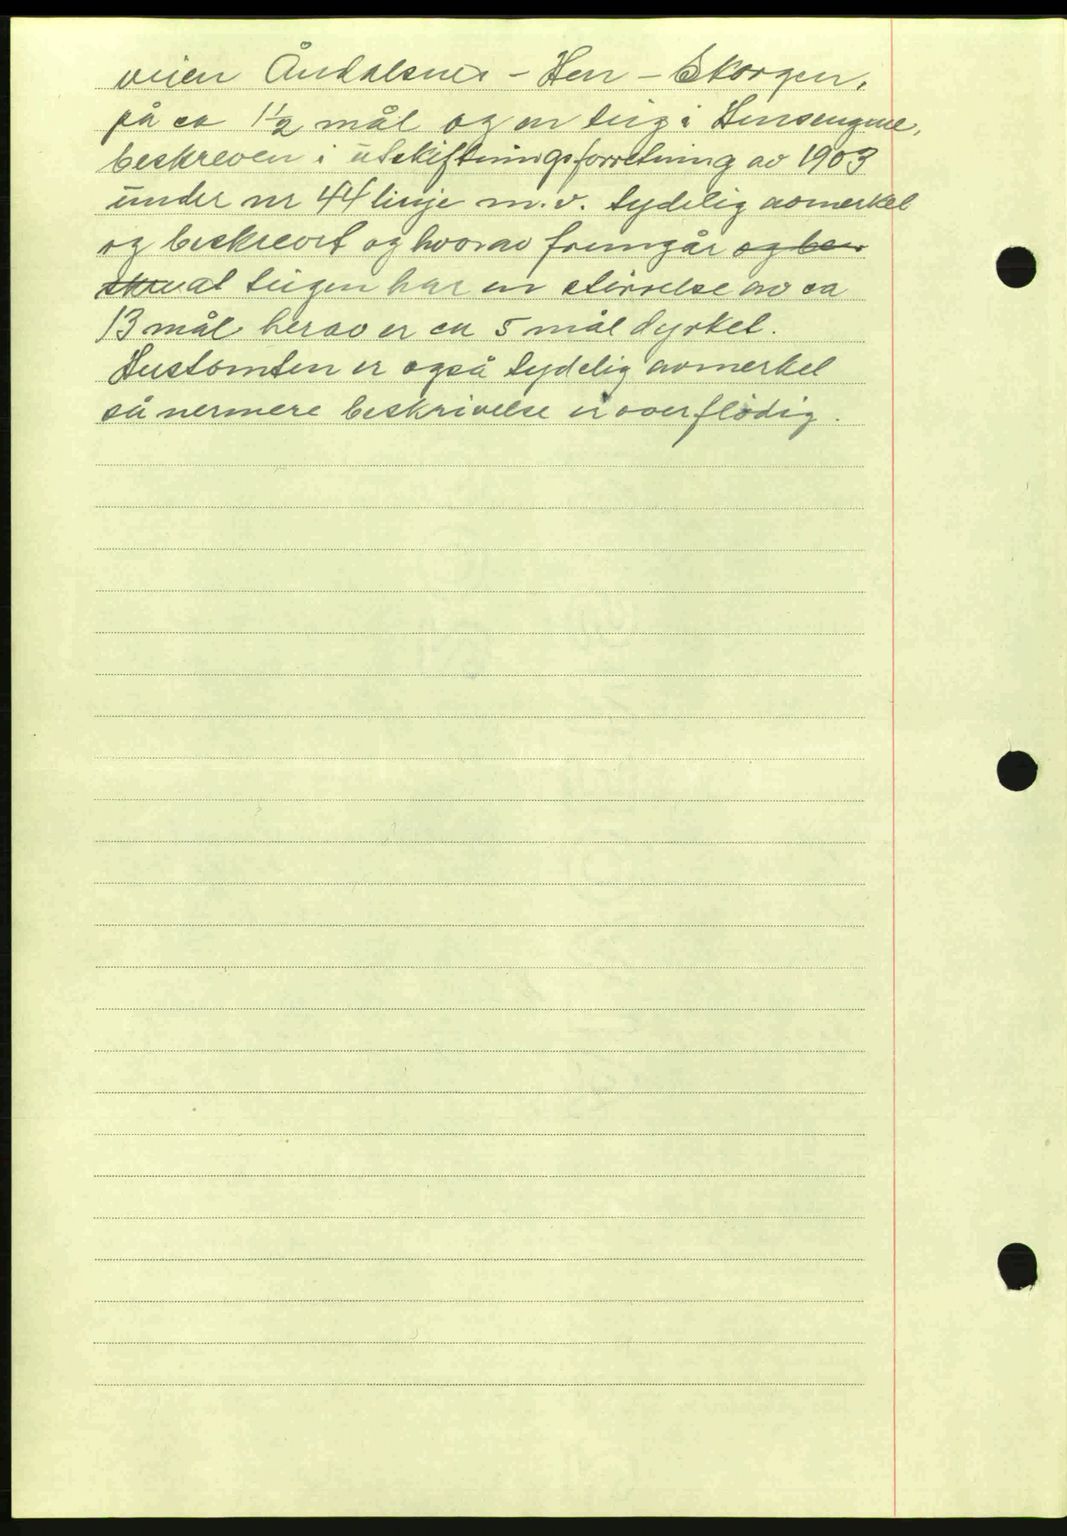 veien Åndalsnes - Hen - Skorgen,
på ca 1½ mål og en teig i Hensengene,
beskreven i utskiftningsforretning av 1903
under nr 44 linje m.v. tydelig avmerket
og beskrevet og hvorav fremgår og be-
skrevat teigen har en størrelse av ca
13 mål herav er ca 5 mål dyrket.
Hustomten er også tydelig avmerket
så nermere beskrivelse er overflødig.